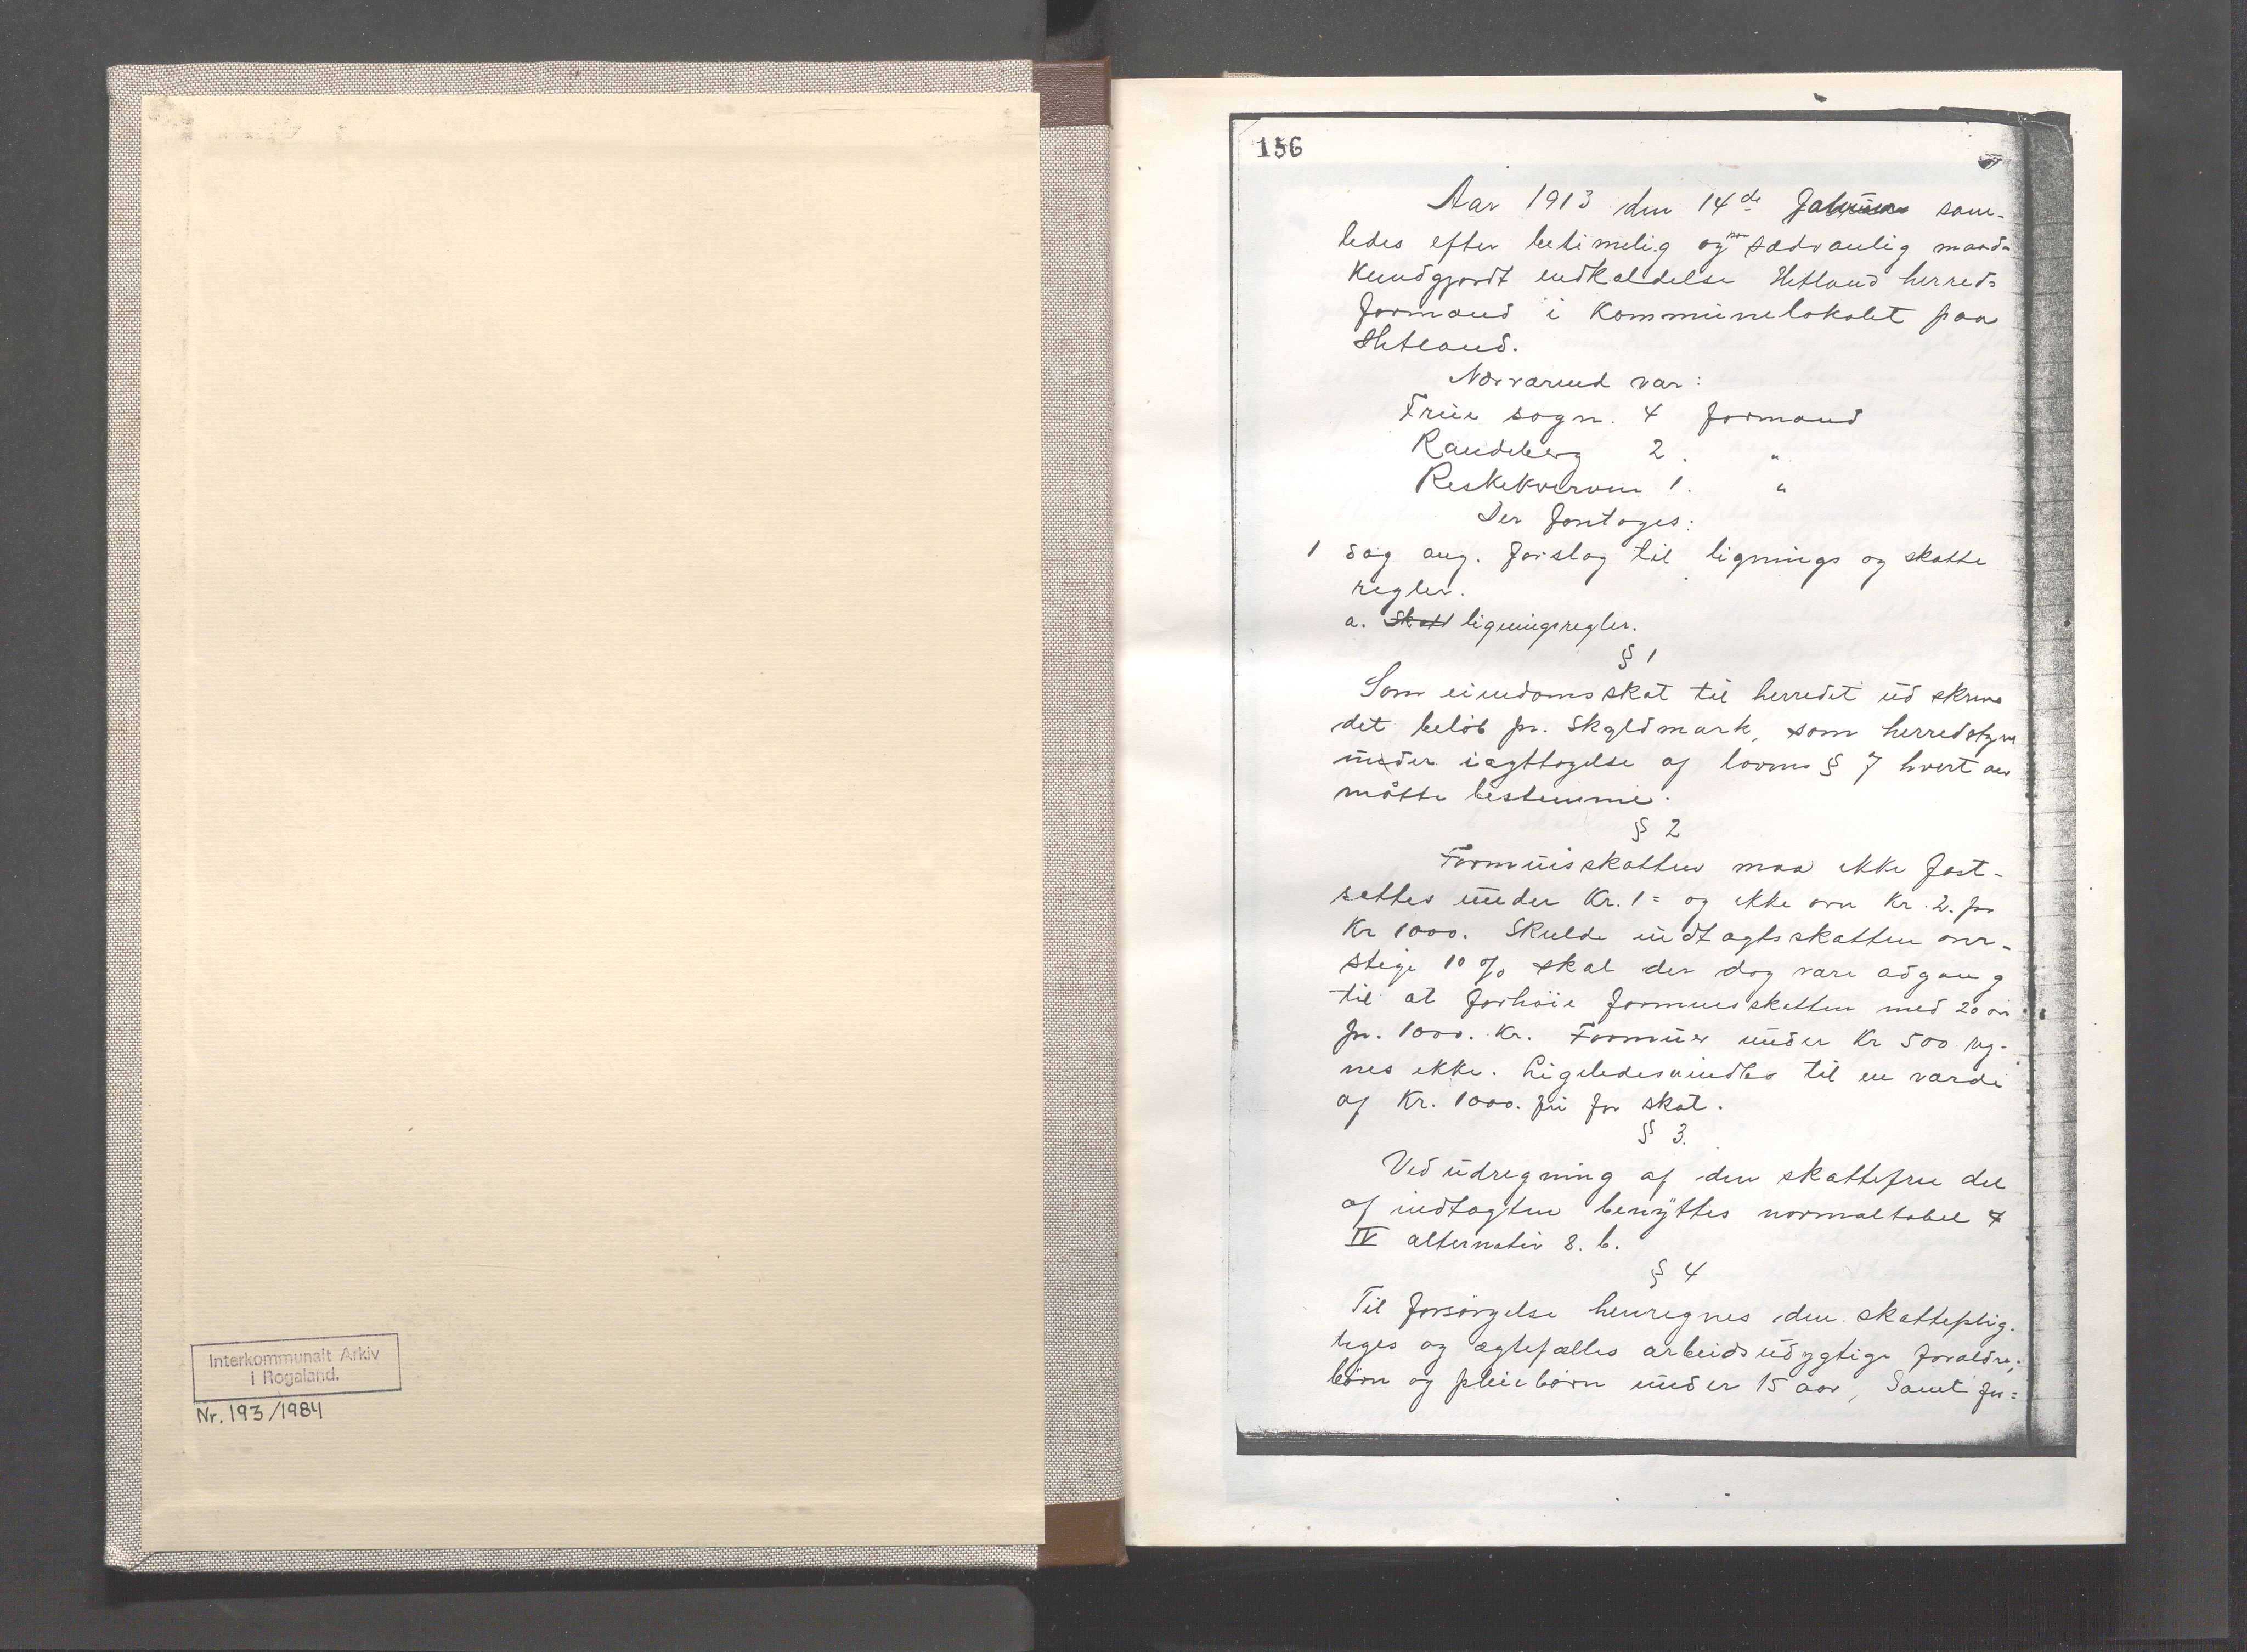 Interkommunalt Arkiv
i Rogaland.
Nr. 193/1984
156
Aar 1913 den 14de sam-
ledes efter betimelig og paa sædvanlig maade
kundgjordt indkaldelse Hetland herreds
formænd i Kommunelokalet paa
Hetland.
Nærværend var:
Frue sogn. 4 formænd
Randeberg 2. "
Reskekverven 1. "
Der foretoges:
1 Sag ang. forslag til lignings og skatte
regler.
a. Skatt ligningsregler.
§ 1
Som eiendomsskat til herredet ud
det beløb pr. Skyldmark, som herredstyre
under iagttagelse af lovens § 7 hvert aar
måtte bestemme.
§ 2
Formuisskatten maa ikke fast-
settes under Kr. 1= og ikke over Kr. 2. pr
Kr 1000. Skulde indtægtsskatten over-
stige 10 % skal der dog være adgang
til at forhøie formuesskatten med 20 øre
pr. 1000. Kr. Formuer under Kr 500 reg-
nes ikke. Ligeledes til en værdi
af Kr. 1000. fri for skat.
§ 3.
Ved udregning af den skattefrie del
af indtægten benyttes normaltabel 4
IV alternativ 8. b.
§ 4
Til forsørgelse henregnes den skatteplig-
tiges og ægtefælles arbeidsudygtige forældre,
børn og pleiebørn under 15 aar, Samt for=